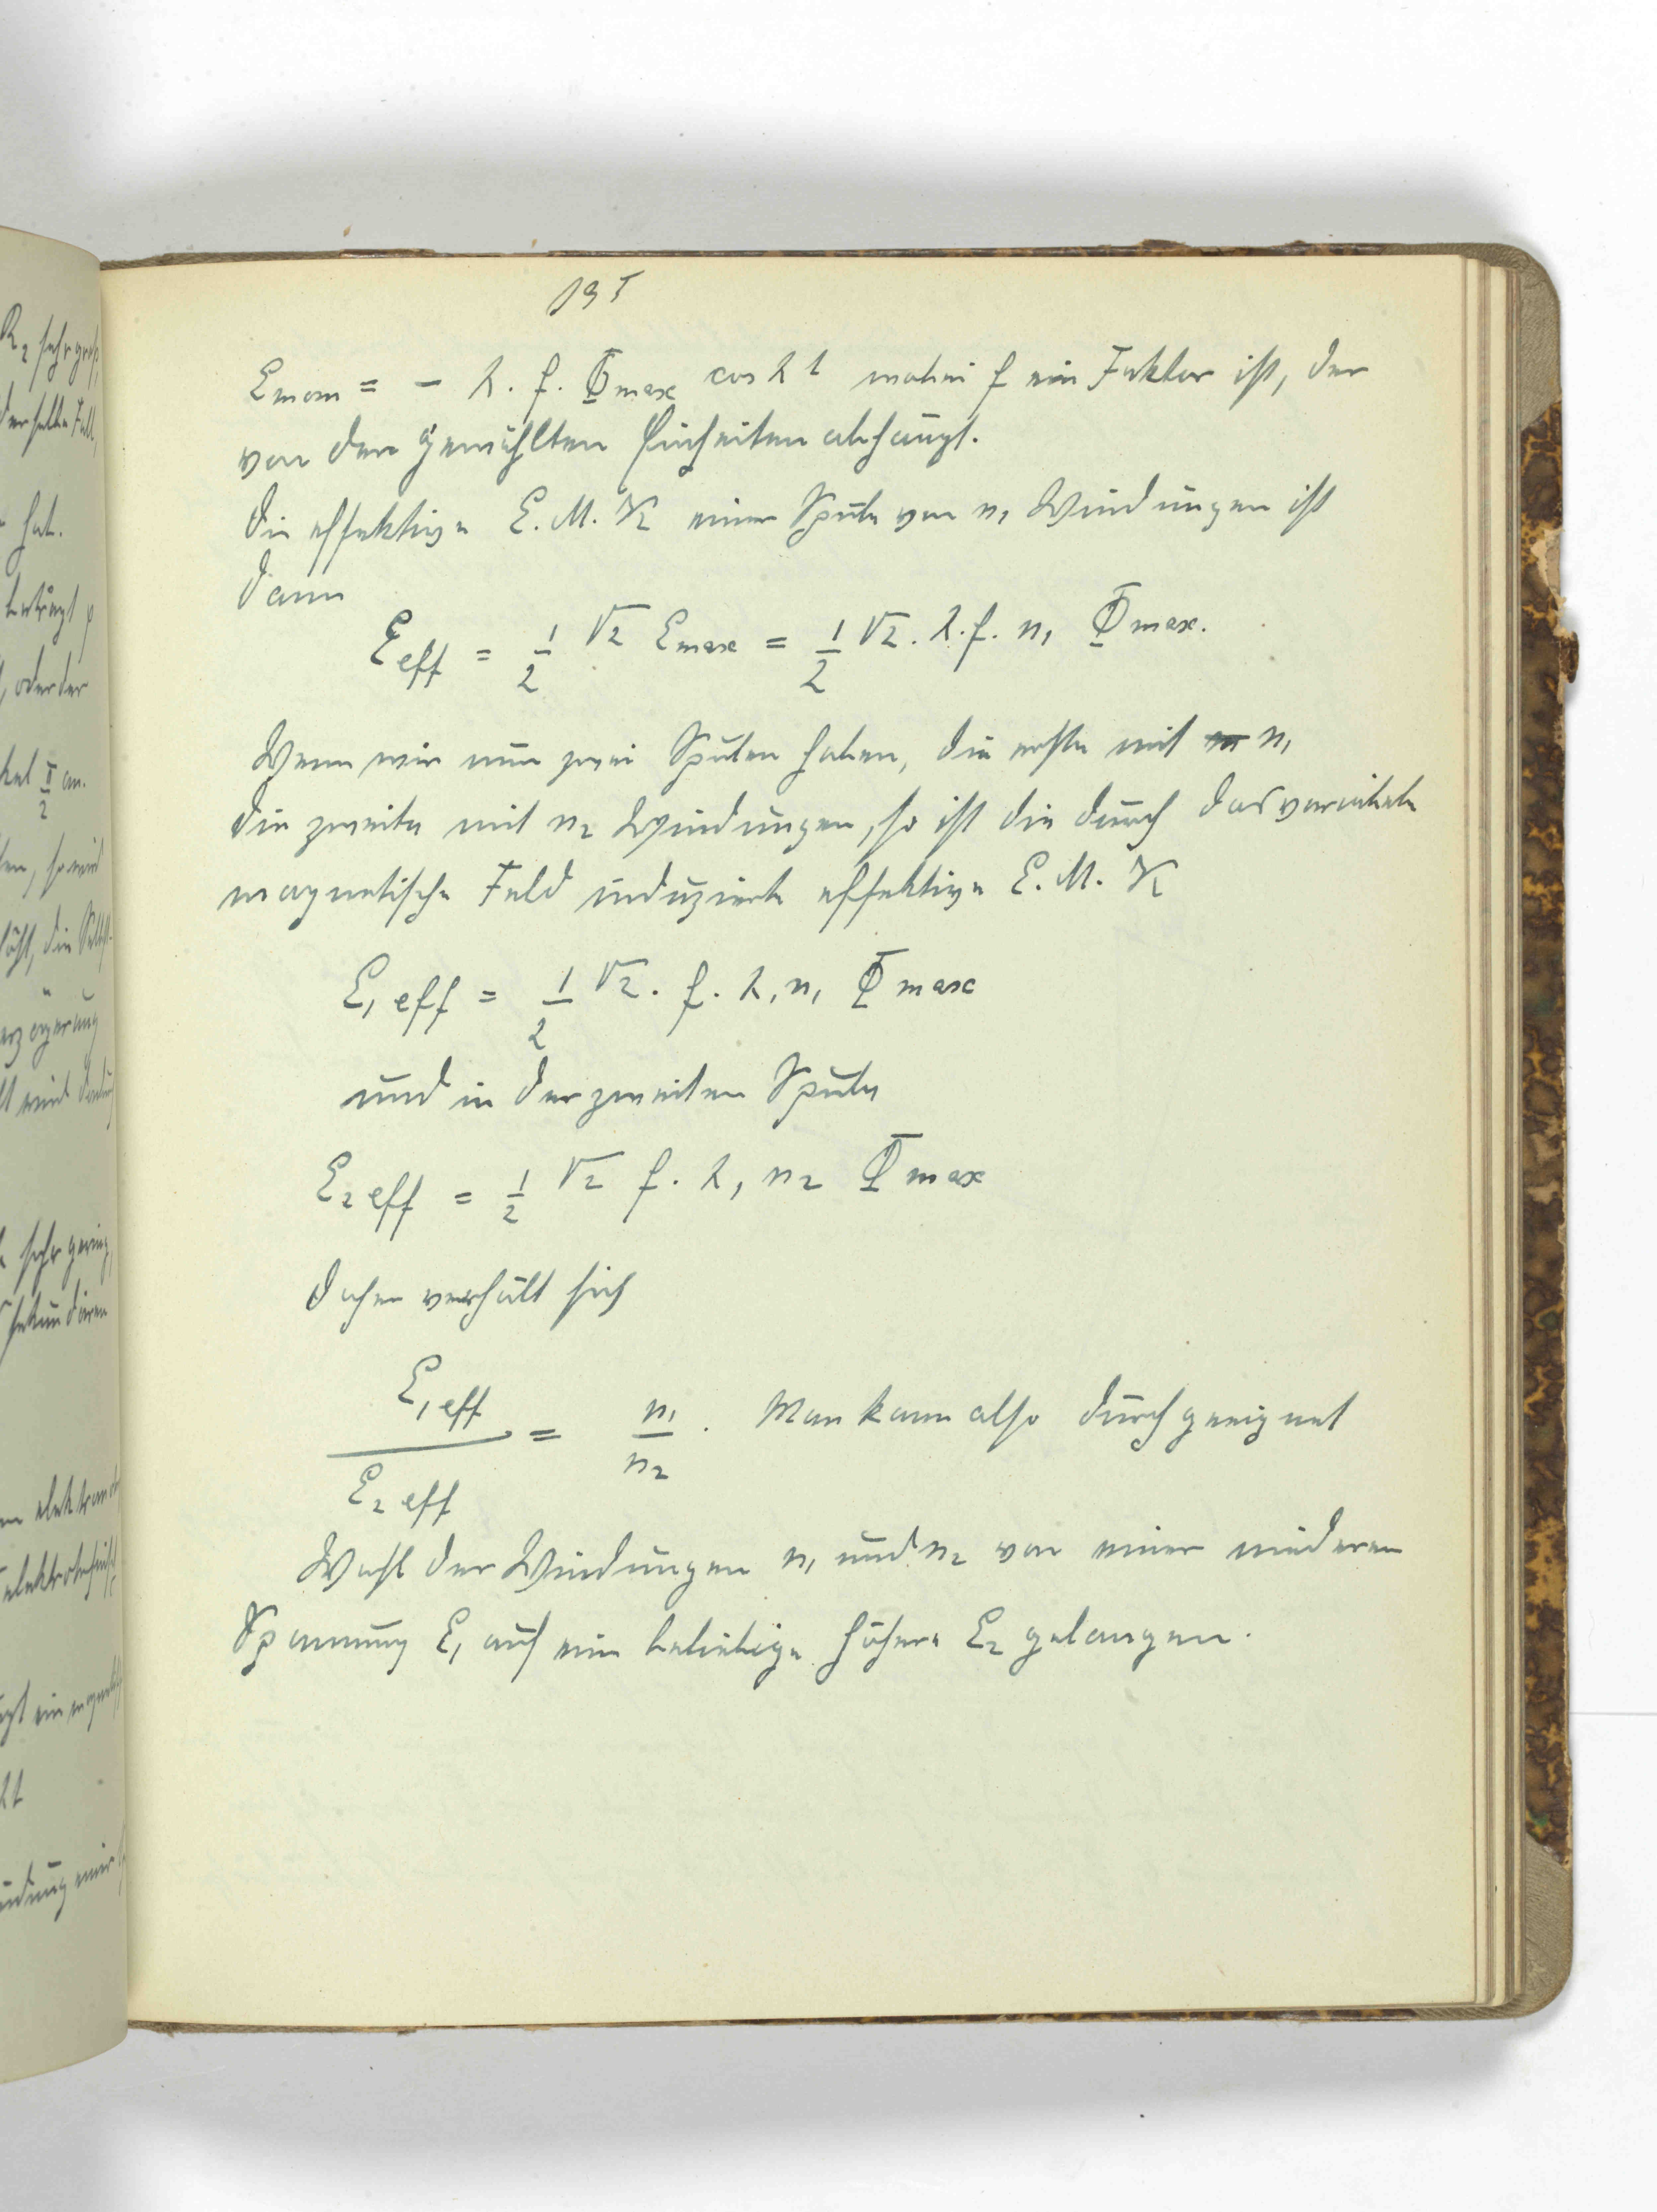 195
Emom = - λ. f. Φmax cos λ t wobei f ein Faktor ist, der
von den gewählten Einheiten abhängt.
Die effektive E. M. K einer Spule von n₁ Windungen ist
dann
Eeff = 1/2 √2 Emax = 1/2 √2. λ. f. n₁ Φmax.
Wenn wir nun zwei Spulen haben, die erste mit n₁
die zweite mit n₂ Windungen, so ist die durch das variable
magnetische Feld induzierte effektive E. M. K
E₁ eff = 1/2 √2. f. λ, n₁ Φmax
und in der zweiten Spule
E₂ eff = 1/2 √2 f. λ, n₂ Φmax
daher verhält sich
E₁ eff / E₂ eff = n₁/n₂. Man kann also durch geeignet
Wahl der Windungen n₁ und n₂ von einer niederen
Spannung E₁ auf eine beliebige höhere E₂ gelangen.